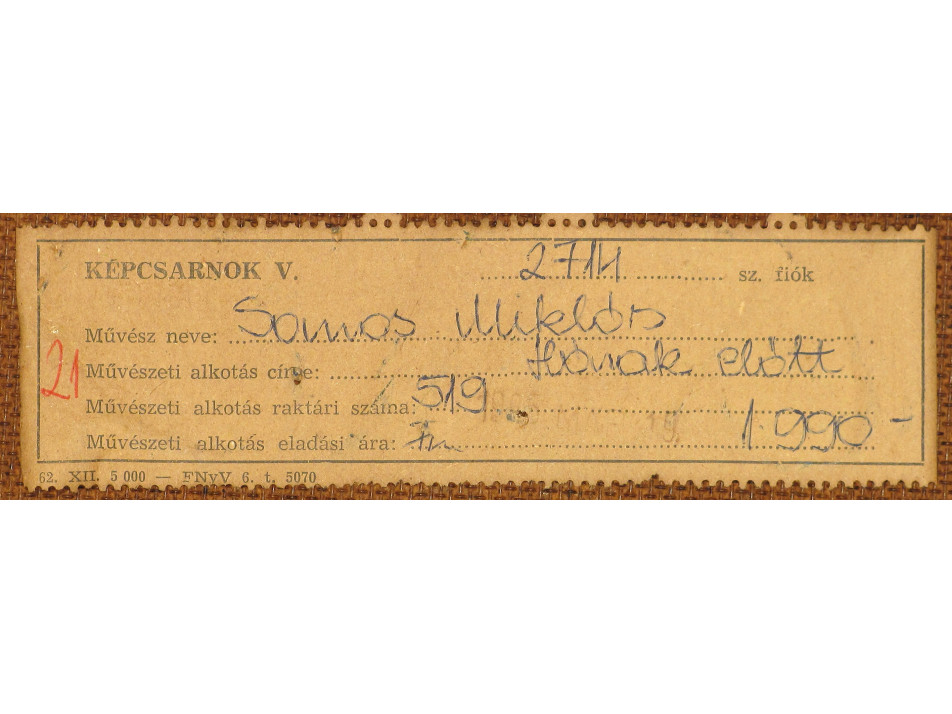 KÉPCSARNOK V. 2714 sz. fiók
Művész neve: Somos Miklós
21 Művészeti alkotás címe: előtt
Művészeti alkotás raktári száma: 519
Művészeti alkotás eladási ára: 1.990-
62. XII. 5 000 — FNyV 6. t. 5070